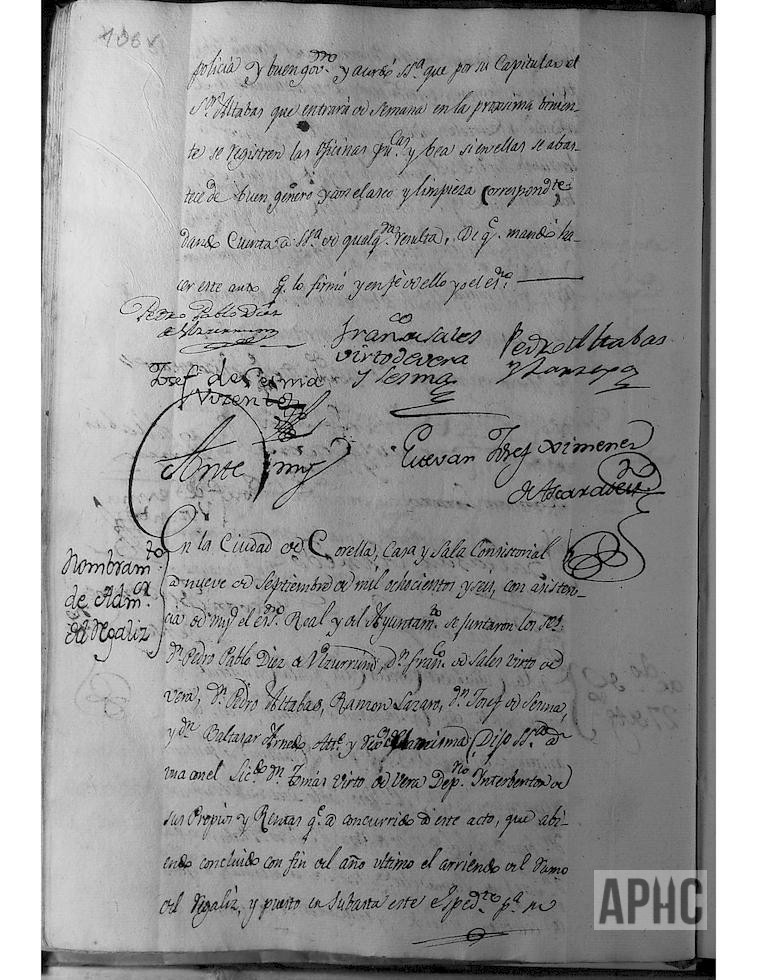 106v
policia y buen gov.no y acordó SS.a que por su Capitular el
S.or Altabas que entrará de Semana en la proxima binien-
te se registren las oficinas pu.cas y bea si en ellas se abas-
tece de buen género y con el aseo y limpieza Correspond.te
dando Cuenta a SS.a de qualq.ra resulta, De q.e mandó ha-
cer este auto q.e lo firmó y en fé de ello yo el es.no
Pedro Pablo Diez
de Ulzurrun
Fran.co de Sales
Virto de vera
y Lesma
Pedro Altabas
y
Josef de Sesma
Vizente
Ante mi
Estevan Josef Ximenez
de Ascarate
Nombram.to
de Adm.or
del Regaliz
En la Ciudad de Corella, Casa y Sala Consistorial
a nueve de Septiembre de mil ochocientos y seis, con asisten-
cia de mi el es.no Real y del Ayuntam.to se juntaron los S.res
D.n Pedro Pablo Diez de Ulzurrun, d.n fran.co de Sales Virto de
Vera, D.n Pedro Altabas, Ramon Lazaro, d.n Josef de Sesma,
y d.n Baltasar Arnedo Alc.e y de la misma (Dijo SS.a a
una con el Lic.do d.n Tomás Virto de Vera Dep.rio Interbentor de
sus Propios y Rentas q.e a concurrido a este acto, que abi-
endo concluido con fin del año ultimo el arriendo del ramo
del Regaliz, y puesto en subasta este Exped.te p.a su
APHC